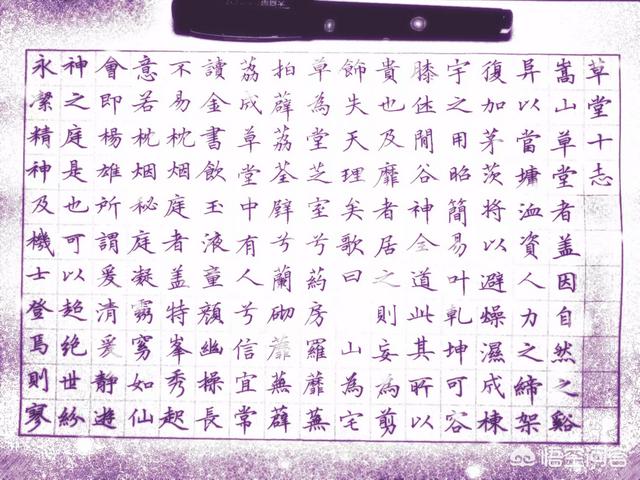 草堂十志
嵩山草堂者盖因自然之谿
异以當墉洫資人力之締架
復加茅茨將以避燥濕成棟
宇之用昭簡易叶乾坤可容
膝休閒谷神全道此其所以
貴也及靡者居之則妄為剪
飾失天理矣歌曰 山為宅
草為堂芝室兮葯房羅蘼蕪
拍薜荔荃壁兮蘭砌蘼蕪薜
荔成草堂中有人兮信宜常
讀金書飲玉液童顏幽操長
不易枕烟庭者盖特峯秀起
意若枕烟秘庭凝霧窅如仙
會即楊雄所謂爰清爰靜遊
神之庭是也可以超絕世紛
永潔精神及機士登焉則寥
悟空问答